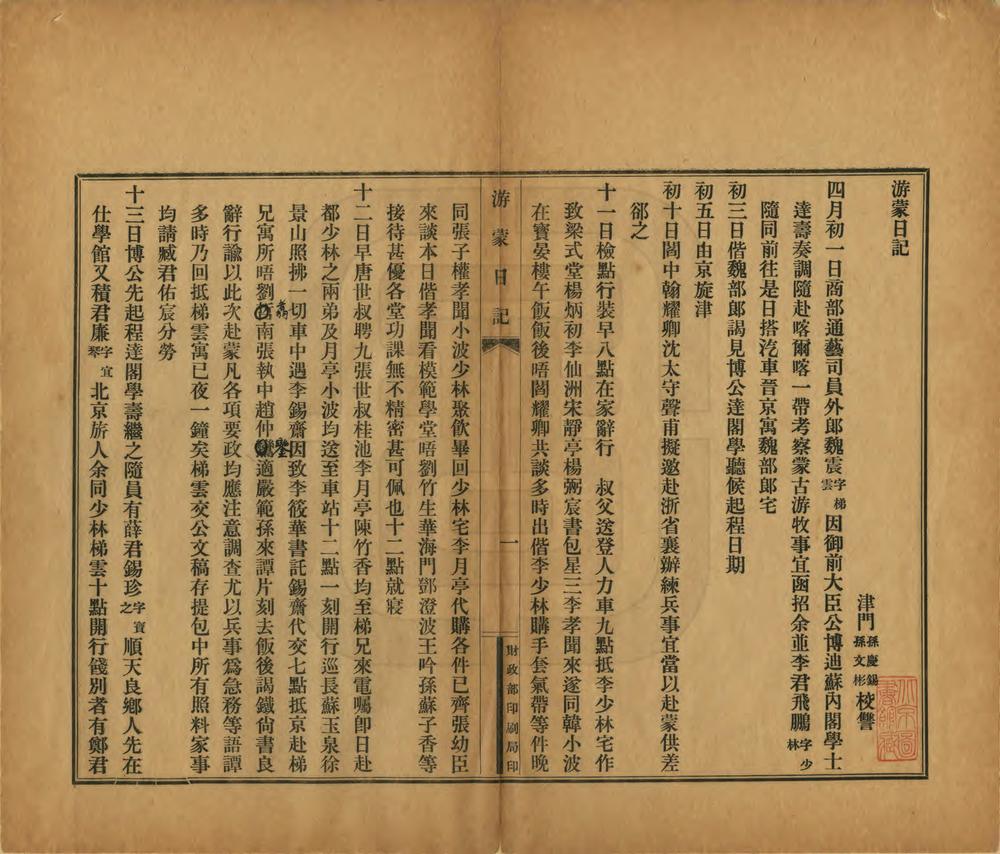 游蒙日記
津門孫慶錫孫文彬校讐
四月初一日商部通藝司員外郎魏震字梯雲因御前大臣公博迪蘇內閣學士
達壽奏調隨赴喀爾喀一帶考察蒙古游牧事宜函招余並李君飛鵬字少林
隨同前往是日搭汽車晉京寓魏部郎宅
初三日偕魏部郎謁見博公達閣學聽候起程日期
初五日由京旋津
初十日閻中翰耀卿沈太守聲甫擬邀赴浙省襄辦練兵事宜當以赴蒙供差
卻之
十一日檢點行裝早八點在家辭行　叔父送登人力車九點抵李少林宅作
致梁式堂楊炳初李仙洲宋靜亭楊弼宸書包星三李孝聞來遂同韓小波
在寶晏樓午飯飯後晤閻耀卿共談多時出偕李少林購手套氣帶等件晚
游蒙日記
一
財政部印刷局印
同張子權孝聞小波少林聚飲畢回少林宅李月亭代購各件已齊張幼臣
來談本日偕孝聞看模範學堂晤劉竹生華海門鄧澄波王吟孫蘇子香等
接待甚優各堂功課無不精密甚可佩也十二點就寢
十二日早唐世叔聘九張世叔桂池李月亭陳竹香均至梯兄來電囑卽日赴
都少林之兩弟及月亭小波均送至車站十二點一刻開行巡長蘇玉泉徐
景山照拂一切車中遇李錫齋因致李筱華書託錫齋代交七點抵京赴梯
兄寓所晤劉南張執中趙仲適嚴範孫來譚片刻去飯後謁鐵尙書良
辭行諭以此次赴蒙凡各項要政均應注意調查尤以兵事爲急務等語譚
多時乃回抵梯雲寓已夜一鐘矣梯雲交公文稿存提包中所有照料家事
均請臧君佑宸分勞
十三日博公先起程達閣學壽繼之隨員有薛君錫珍字寶之順天良鄉人先在
仕學館又積君廉字宜琴北京旂人余同少林梯雲十點開行餞別者有鄭君